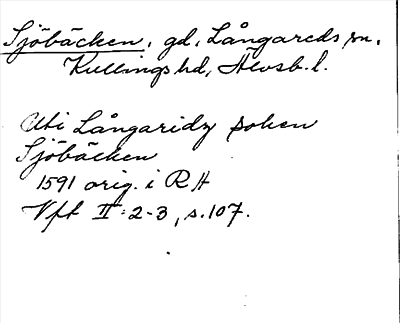 Sjöbäcken, gd, Långareds sn.
Kullings hd, Älvsb. l.
Uti Långaridz soken
Sjöbäcken
1591 orig. i RA
Vft II: 2-3, s. 107.